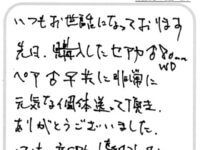 いつもお世話になっております
先日、購入したセアカ♂80mm
WD
ペア♂♀共に非常に
元気な個体送って頂き、
ありがとうございました.